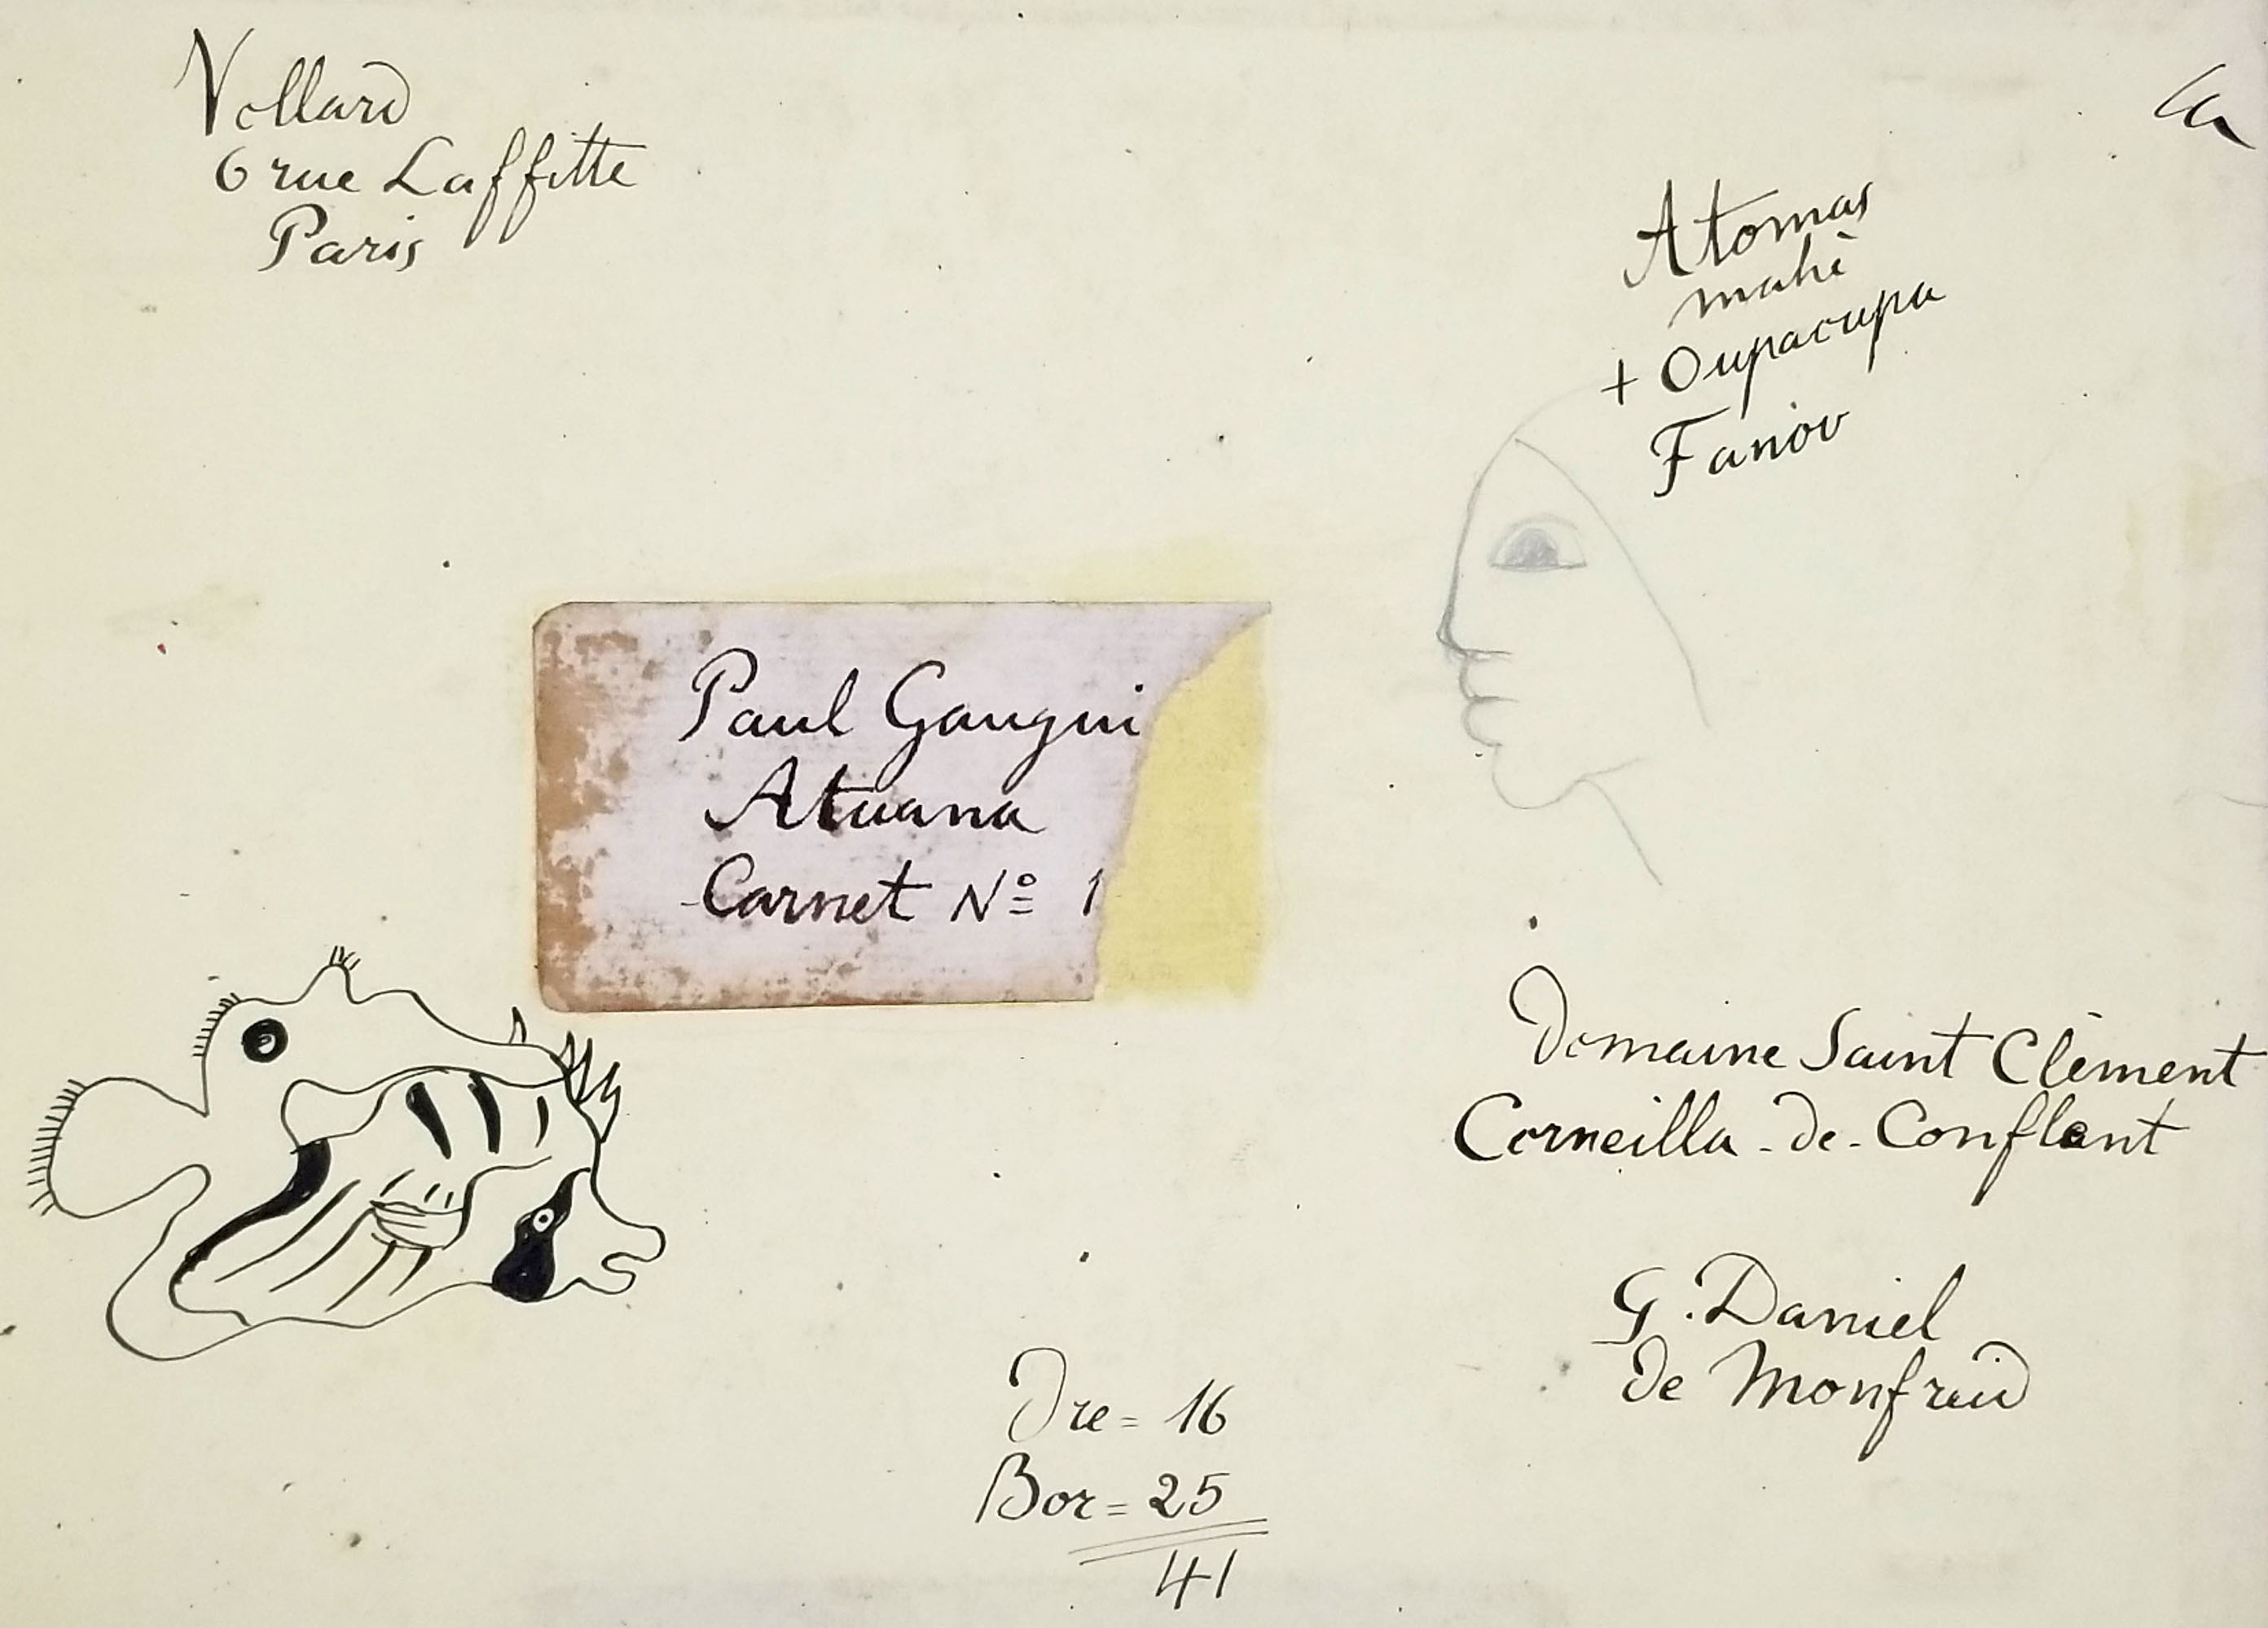 Vollard
6 rue Laffitte
Paris
Atomas
mahè
+ Oupaoupa
Fanòu
Paul Gaugui
Atuana
Carnet Nº 1
Domaine Saint Clèment
Corneilla-de-Conflent
G. Daniel
de Monfreid
Dre = 16
Bor = 25
41